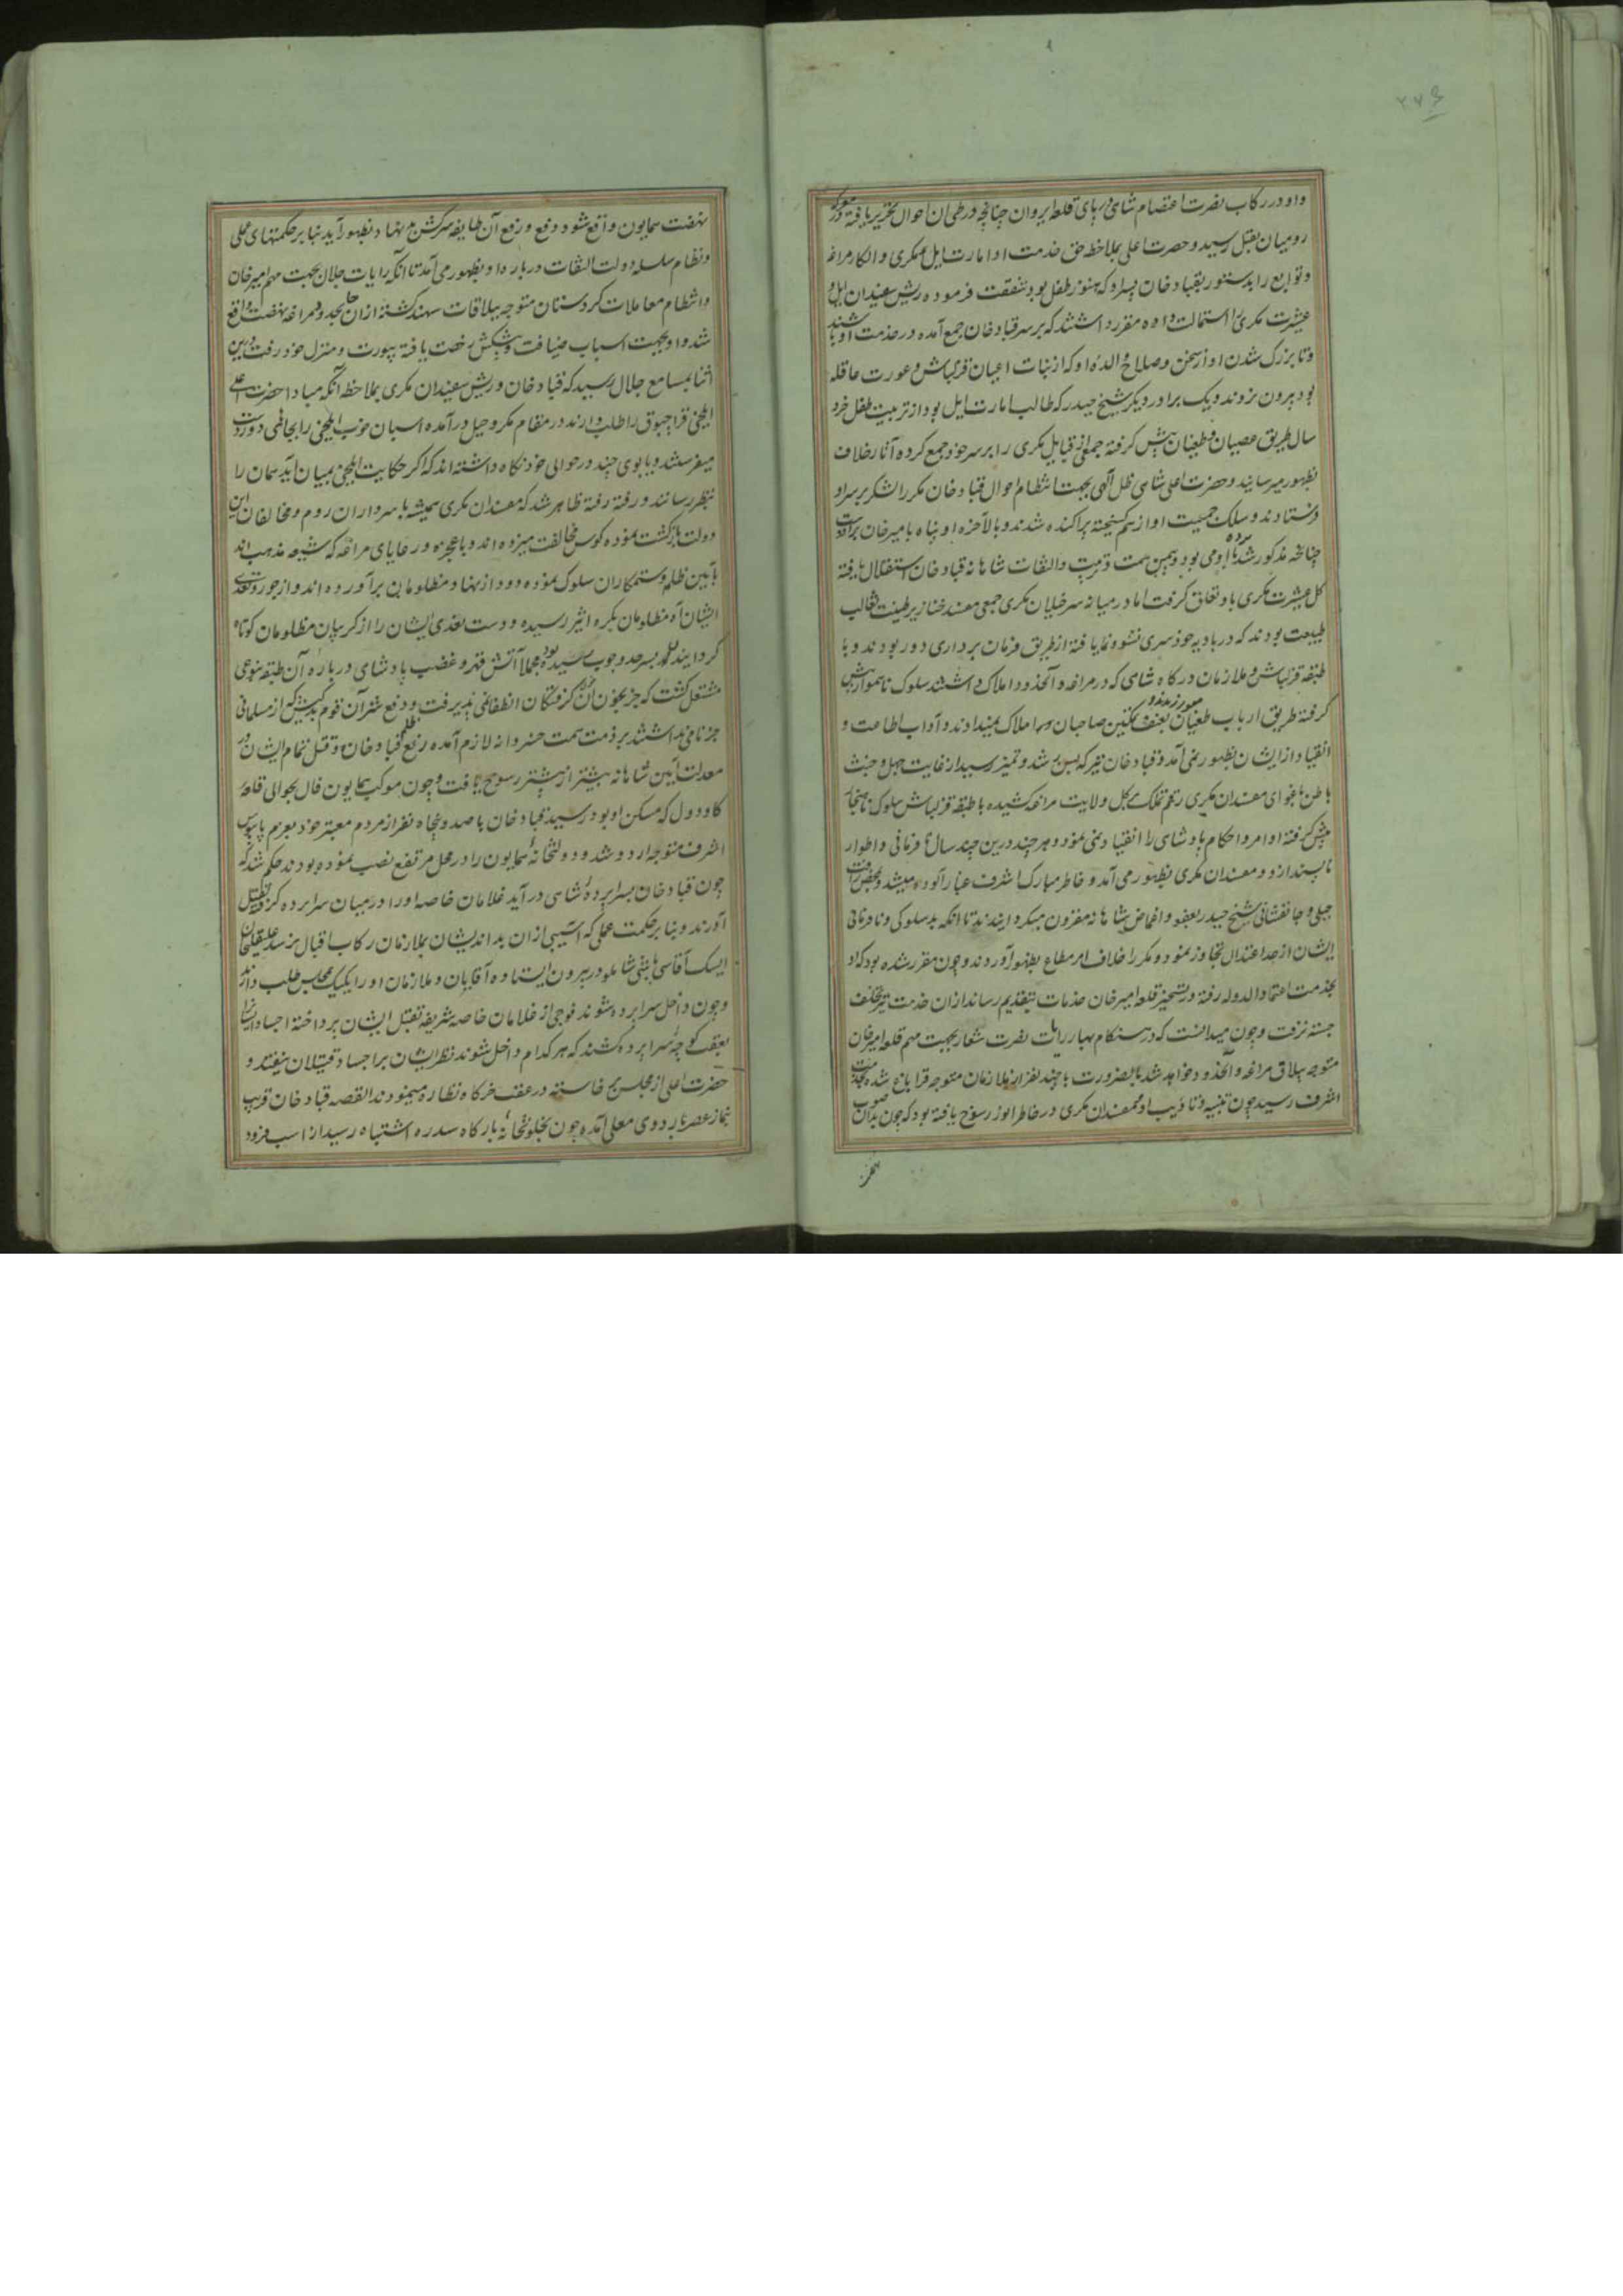 ۲۷۶
و او در رکاب نصرت اعتصام شاهی در پای قلعه ایروان چنانچه در طی آن احوال تحریر یافته در معرکه
رومیان بقتل رسید و حضرت اعلی بملاحظه حق خدمت او امارت ایل مکری و الکار مراغه
و توابع را بدستور بقباد خان پسر او که هنوز طفل بود شفقت فرموده ریش سفیدان ایل و
عشیرت مکری را استمالت داده مقرر داشتند که بر سر قباد خان جمع آمده در خدمت او باشند
و تا بزرک شدن او از سخن و صلاح والده او که از بنات اعیان قزلباش و عورت عاقله
بود بیرون نروند و یک برادر دیگر شیخ حیدر که طالب امارت ایل بود از تربیت طفل خرد
سال طریق عصیان و طغیان پیش کرفته جمعی از قبایل مکری را بر سر خود جمع کرده آثار خلاف
بظهور میرسانید و حضرت اعلی شاهی ظل آلهی بجهت انتظام احوال قباد خان مکرر لشکر بر سر او
فرستادند و سلک جمعیت او از هم کسیخته پراکنده شدند و بالآخره او پناه بامیر خان برادوست برده
چنانچه مذکور شد با او می بود و بیمن همت و تربیت و التفات شاهانه قباد خان استقلال یافته
کل عشیرت مکری باو تعلق کرفت اما در میانه سرخیلان مکری جمعی مفسد خنازیر طینت ثعالب
طبیعت بودند که در بادیه خودسری نشو و نما یافته از طریق فرمان برداری دور بودند و با
طبقه قزلباش و ملازمان درکاه شاهی که در مراغه و آنحدود املاک داشتند سلوک ناهموار پیش
کرفته طریق ارباب طغیان می ورزیدند و بعنف تمکین صاحبان املاک نمیدادند و آداب اطاعت و
انقیاد از ایشان بظهور نمی آمد و قباد خان نیز که بسن رشد و تمیز رسید از غایت جهل و خبث
باطن باغوای مفسدان مکری رقم تملک بر کل ولایت مراغه کشیده با طبقه قزلباش سلوک ناهنجار
پیش کرفته اوامر و احکام پادشاهی را انقیاد نمی نمود و هر چند درین چند سال نافرمانی و اطوار
ناپسند از و و مفسدان مکری بظهور می آمد و خاطر مبارک اشرف غبارآلوده میشد
و جانفشانی شیخ حیدر بعفو و اغماض شاهانه مقرون میکردانیدند تا آنکه بدسلوکی و نافرمانی
ایشان از حد اعتدال تجاوز نمود و مکرر خلاف امر مطاع بظهور آوردند و چون مقرر شده بود که او
بخدمت اعتماد الدوله رفته در تسخیر قلعه امیر خان خدمات بتقدیم رساند از ان خدمت نیز تخلف
جسته نرفت و چون میدانست که در هنکام بهار رایات نصرت شعار بجهت مهم قلعه امیر خان
متوجه ییلاق مراغه و آنحدود خواهد شد بالضرورت با چند نفر از ملازمان متوجه قرا باغ شده بخدمت
اشرف رسید چون تنبیه و تادیب او و مفسدان مکری در خاطر انور رسوخ یافته بود که چون بدان صوب
نهضت
نهضت همایون واقع شود دفع و رفع آن طایفه سرکش بدنهاد بظهور آید بنا بر حکمتهای عملی
و نظام سلسله دولت التفات درباره او بظهور می آمد تا آنکه رایات جلال بجهت مهم امیر خان
و انتظام معاملات کردستان متوجه ییلاقات سهند کشته از ان محل بحدود مراغه نهضت واقع
شد و او بجهت اسباب ضیافت و پیشکش رخصت یافته بیورت و منزل خود رفت و درین
اثنا بمسامع جلال رسید که قباد خان و ریش سفیدان مکری بملاحظه آنکه مبادا حضرت اعلی
ایلخی قراچبوق را طلب دارند در مقام مکر و حیل درآمده اسبان خوب ایلخی را بجاهای دور دست
میفرستند و یابوی چند در حوالی خود نکاه داشته اند که اکر حکایت ایلخی بمیان آید همان را
بنظر رسانند و رفته رفته ظاهر شد که مفسدان مکری همیشه با سرداران روم و مخالفان این
دولت بازکشت نموده کوس مخالفت میزده اند و با عجزه و رعایای مراغه که شیعه مذهب اند
بآیین ظلم و ستمکاران سلوک نموده دود از نهاد مظلومان برآورده اند و از جور و تعدی
ایشان آه مظلومان بکره اثیر رسیده و دست تعدی ایشان را از کریبان مظلومان کوتاه
کردانیدن بسرحد وجوب رسیده بود مجملا آتش قهر و غضب پادشاهی درباره آن طبقه بنوعی
مشتعل کشت که جز بخون آن کرفتکان انطفا نمی پذیرفت و دفع شر آن قوم بدکیش که از مسلمانی
جز نامی نداشتند بر ذمت همت خسروانه لازم آمده رفع ظلم قباد خان و قتل تمام ایشان در
معدلت آیین شاهانه بیشتر از پیشتر رسوخ یافت و چون موکب همایون فال بحوالی قلعه
کاودول که مسکن او بود رسید قباد خان با صد و پنجاه نفر از مردم معتبر خود بعزم پابوس
اشرف متوجه اردو شد و دولتخانه همایون را در محل مرتفع نصب نموده بودند حکم شد که
چون قباد خان بسراپرده شاهی درآید غلامان خاصه او را در میان سراپرده کرفته بقتل
آورند و بنا بر حکمت عملی که آسیبی از ان بداندیشان بملازمان رکاب اقبال نرسد علیقلیخان
ایشک آقاسی باشی شاملو در بیرون ایستاده آقایان و ملازمان او را یکیک بمجلس طلب دارند
و چون داخل سراپرده شوند فوجی از غلامان خاصه شریفه بقتل ایشان پرداخته اجساد ایشان را
بعقب کوچه سراپرده کشند که هر کدام داخل شوند نظر ایشان بر اجساد قتیلان نیفتد و
حضرت اعلی از مجلس برخاسته در عقب خرکاه نظاره مینمودند القصه قباد خان قریب
بنماز عصر باردوی معلی آمده چون بخلوتخانه بارکاه سدره اشتباه رسید از اسب فرود